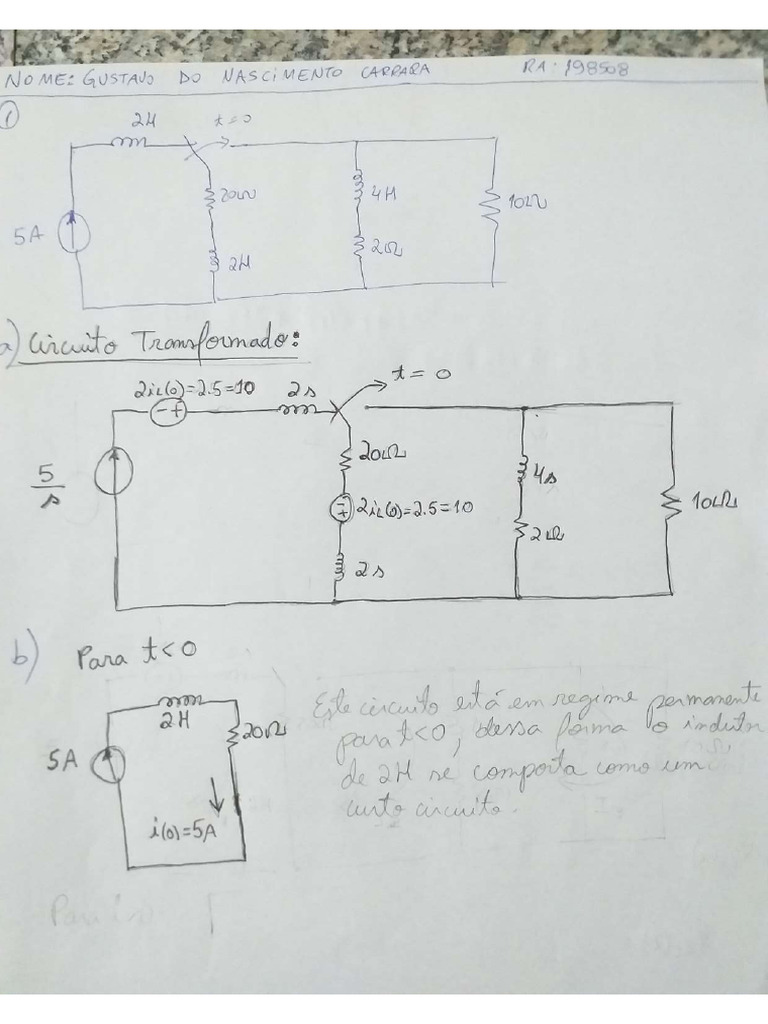 NOME: GUSTAVO DO NASCIMENTO CARRARA RA: 198508
1
2H t=0
20Ω 4H 10Ω
5A
2H 2Ω
a) Circuito Transformado:
2iL(0)=2.5=10 2s t=0
20Ω
5/s 4s
2iL(0)=2.5=10 10Ω
2Ω
2s
b) Para t<0
2H
20Ω
5A
i(0)=5A
Este circuito está em regime permanente
para t<0, dessa forma o indutor
de 2H se comporta como um
curto circuito.